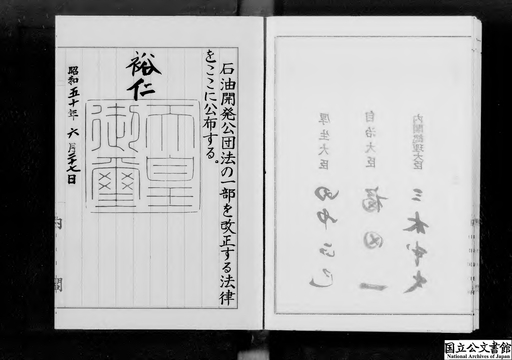 石油開発公団法の一部を改正する法律
をここに公布する。
裕仁
天皇
御璽
昭和五十年六月二十七日
内閣
内閣総理大臣
三木武夫
自治大臣
福田一
厚生大臣
田中正巳
国立公文書館
National Archives of Japan